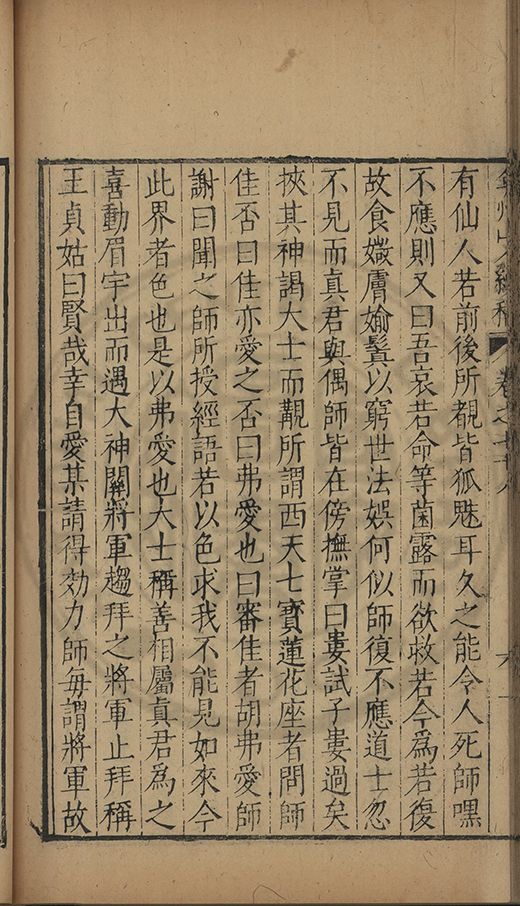 弇州山人續稿 卷之七十八 六
有仙人若前後所覩皆狐魅耳久之能令人死師嘿
不應則又曰吾哀若命等菌露而欲救若今爲若復
故食媺膚媮鬒以窮世法娛何似師復不應道士忽
不見而眞君與偶師皆在傍撫掌曰婁試子婁過矣
挾其神謁大士而觀所謂西天七寶蓮花座者問師
佳否曰佳亦愛之否曰弗愛也曰審佳者胡弗愛師
謝曰聞之師所授經語若以色求我不能見如來今
此界者色也是以弗愛也大士稱善相屬眞君爲之
喜動眉宇出而遇大神關將軍趨拜之將軍止拜稱
王貞姑曰賢哉幸自愛某請得効力師每謂將軍故